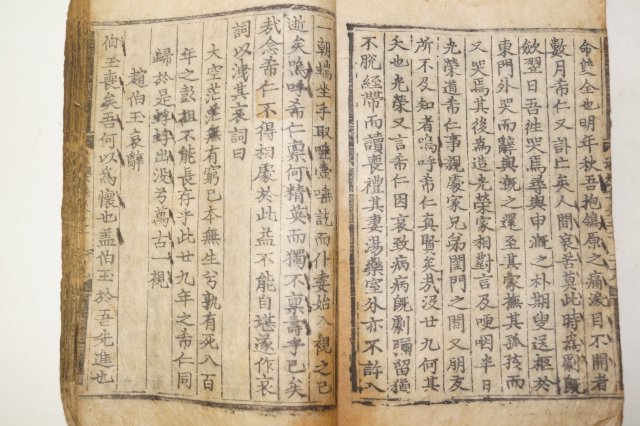 命雙全也明年秋吾抱鴒原之痛淚目不開者
數月希仁又訃亡矣人間哀苦莫此時爲劇旣
斂翌日吾往哭焉尋與申漑之朴期叟送柩於
東門外哭而辭與漑之還至其家撫其孤孩而
又哭焉其後爲造光榮家相對言及哽咽半日
光榮道希仁事親處家兄弟閨門之間又朋友
所不及知者嗚呼希仁眞賢矣哉沒廿九何其
夭也光榮又言希仁因哀致病病旣劇猶
不脫經帶而讀喪禮其妻湯藥室分亦不許入
一朝端坐手取唾壺唾訖而仆妻始入視之已
逝矣嗚呼希仁稟何精英而獨不稟壽乎已矣
哉念希仁不得相處於此益不能自堪遂作哀
詞以洩其哀詞曰
大空茫茫無有窮已本無生兮孰有死八百
年之彭祖不能長存乎此廿九年之希仁同
歸於是蜉蝣出沒兮萬古一視
趙伯玉哀辭
伯玉喪矣吾何以爲懷也盖伯玉於吾先進也